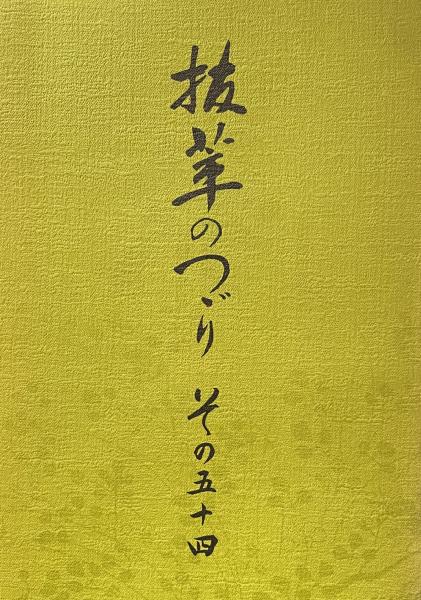 抜萃のつゞり その五十四